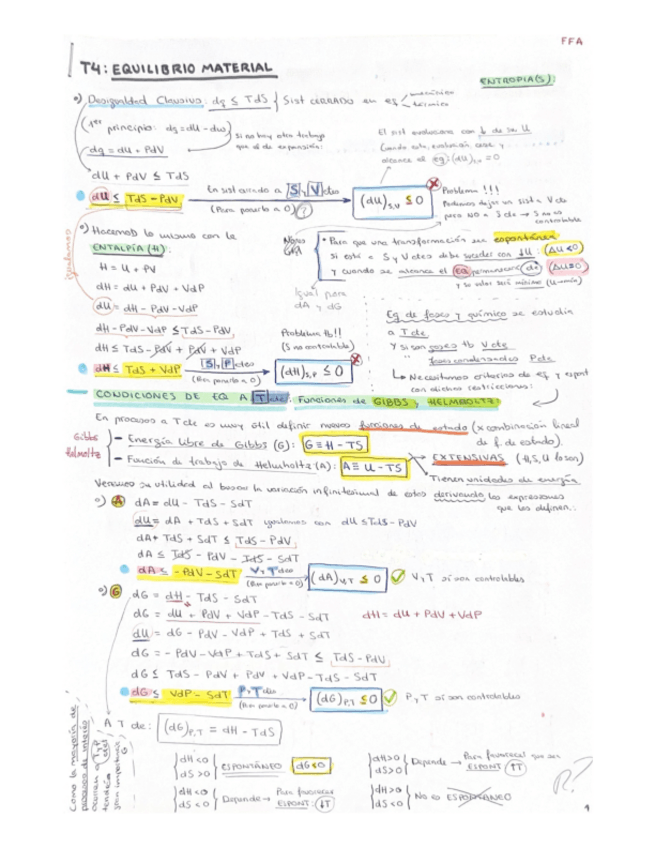 FFA
T4: EQUILIBRIO MATERIAL
ENTROPIA(S):
Desigualdad Clausius: dq ≤ TdS { Sist CERRADO en eq mecánico
térmico
(1er principio: dq = dU - dw)
Si no hay otro trabajo
que el de expansión:
dq = dU + PdV
El sist evoluciona con ↓ de su U
Cuando esta evolución cese y
alcance el eq: (dU)s,v = 0
dU + PdV ≤ TdS
dU ≤ TdS - PdV
En sist cerrado a S, V ctes
(Para ponerlo a 0) ?
(dU)S,V ≤ 0
Problema !!!
Podemos dejar un sist a V cte
pero NO a S cte → S no es
controlable
Hacemos lo mismo con la
ENTALPÍA (H):
H = U + PV
dH = dU + PdV + VdP
dU = dH - PdV - VdP
dH - PdV - VdP ≤ TdS - PdV
dH ≤ TdS - PdV + PdV + VdP
dH ≤ TdS + VdP
S, P ctes
(Para ponerlo a 0)
(dH)S,P ≤ 0
Problema tb!!
(S no controlable)
• Para que una transformación sea espontánea
si esté a S y V ctes debe suceder con ↓U: (ΔU<0)
y cuando se alcance el EQ permanecerá cte (ΔU=0)
y su valor será mínimo (U=mín)
Igual para
dA y dG
Eq de fases y químico se estudia
a T cte
Y si son gases tb V cte
" fases condensadas P cte
↳ Necesitamos criterios de eq y espont
con dichas restricciones:
CONDICIONES DE EQ A T cte: Funciones de GIBBS y HELMHOLTZ
En procesos a T cte es muy útil definir nuevas funciones de estado (x combinación lineal
de f. de estado).
Gibbs
Helmoltz
- Energía libre de Gibbs (G): G ≡ H - TS
- Función de trabajo de Helmholtz (A): A ≡ U - TS
→ EXTENSIVAS (H, S, U lo son)
Tienen unidades de energía
Veremos su utilidad al buscar la variación infinitesimal de estas derivando las expresiones
que las definen:
A dA = dU - TdS - SdT
dU = dA + TdS + SdT igualamos con dU ≤ TdS - PdV
dA + TdS + SdT ≤ TdS - PdV
dA ≤ TdS - PdV - TdS - SdT
dA ≤ - PdV - SdT
V, T ctes
(Para ponerlo a 0)
(dA)V,T ≤ 0
V, T sí son controlables
G dG = dH - TdS - SdT
dG = dU + PdV + VdP - TdS - SdT
dH = dU + PdV + VdP
dU = dG - PdV - VdP + TdS + SdT
dG = - PdV - VdP + TdS + SdT ≤ TdS - PdV
dG ≤ TdS - PdV + PdV + VdP - TdS - SdT
dG ≤ VdP - SdT
P, T ctes
(Para ponerlo a 0)
(dG)P,T ≤ 0
P, T sí son controlables
A T cte: (dG)P,T = dH - TdS
Como la mayoría de
procesos de interés
ocurren a T y P
ctes
gran importancia
G
dH<0
dS>0
ESPONTÁNEO dG<0
dH>0
dS>0
Depende → Para favorecer que sea
ESPONT ↑T
dH<0
dS<0
Depende → Para favorecer
ESPONT: ↓T
dH>0
dS<0
No es ESPONTÁNEO
R?
1